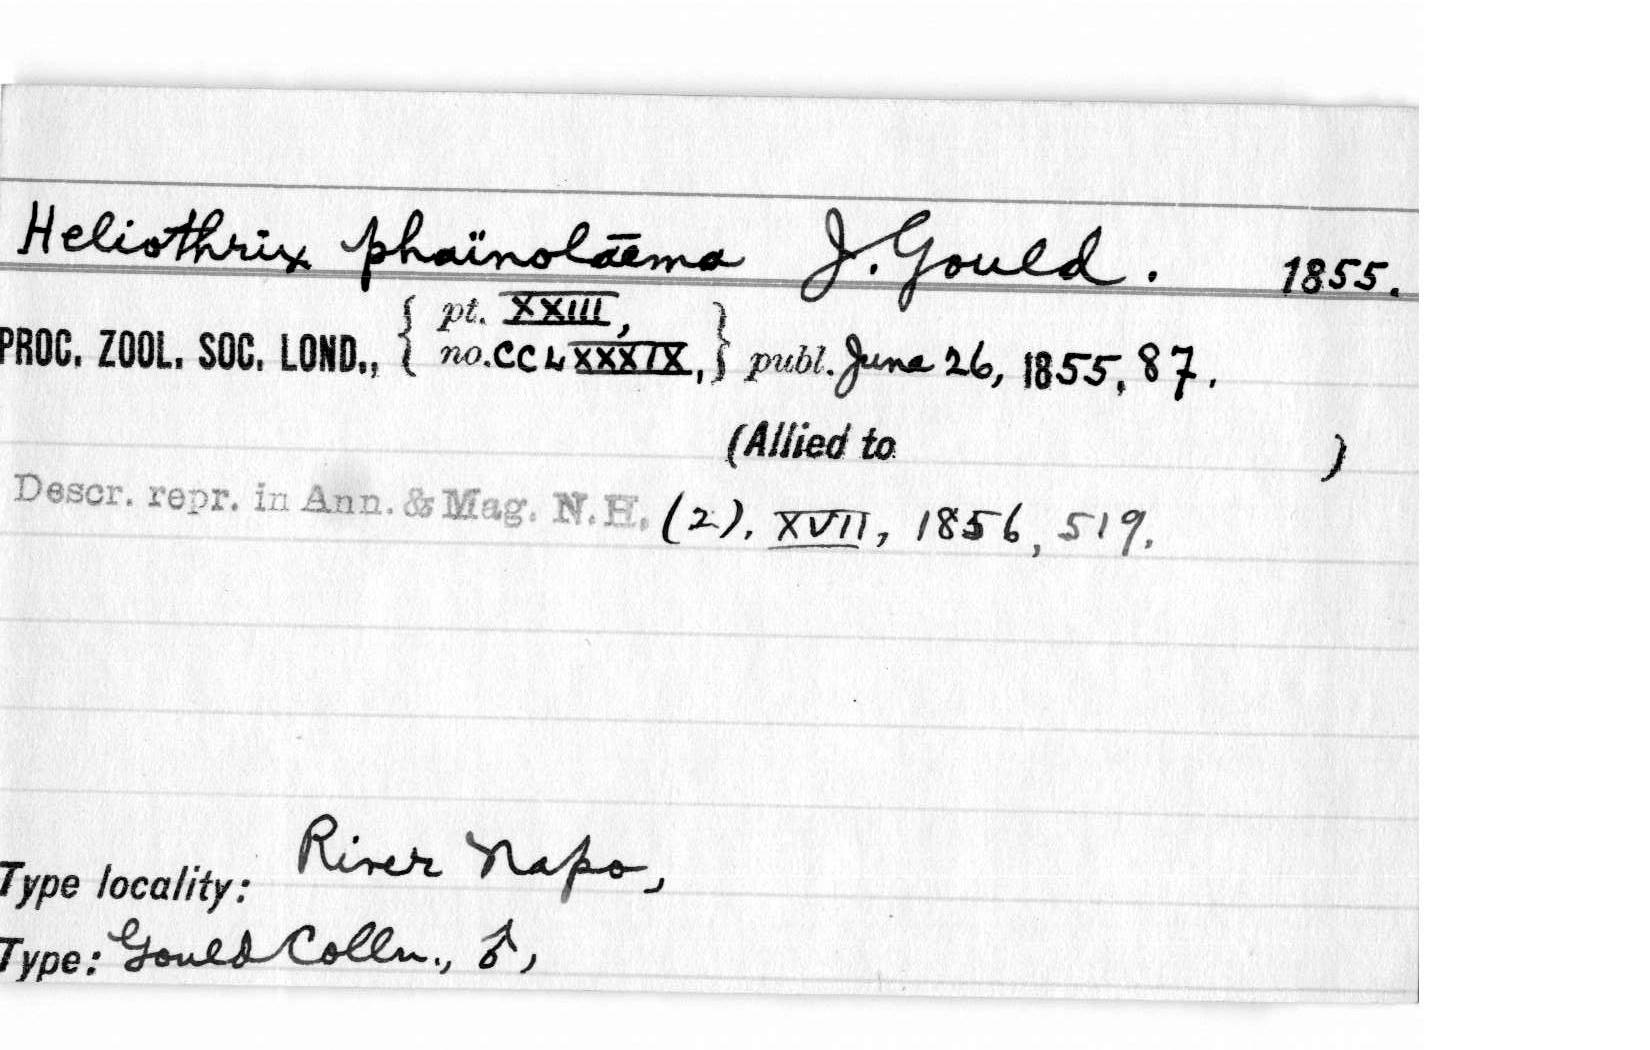 Heliothrix phaïnolāema J. Gould. 1855.
PROC. ZOOL. SOC. LOND., { pt. XXIII, no. CCLXXXIX, } publ. June 26, 1855, 87.
(Allied to )
Descr. repr. in Ann. & Mag. N.H. (2), XVII, 1856, 519.
Type locality: River Napo,
Type: Gould Colln., ♂,